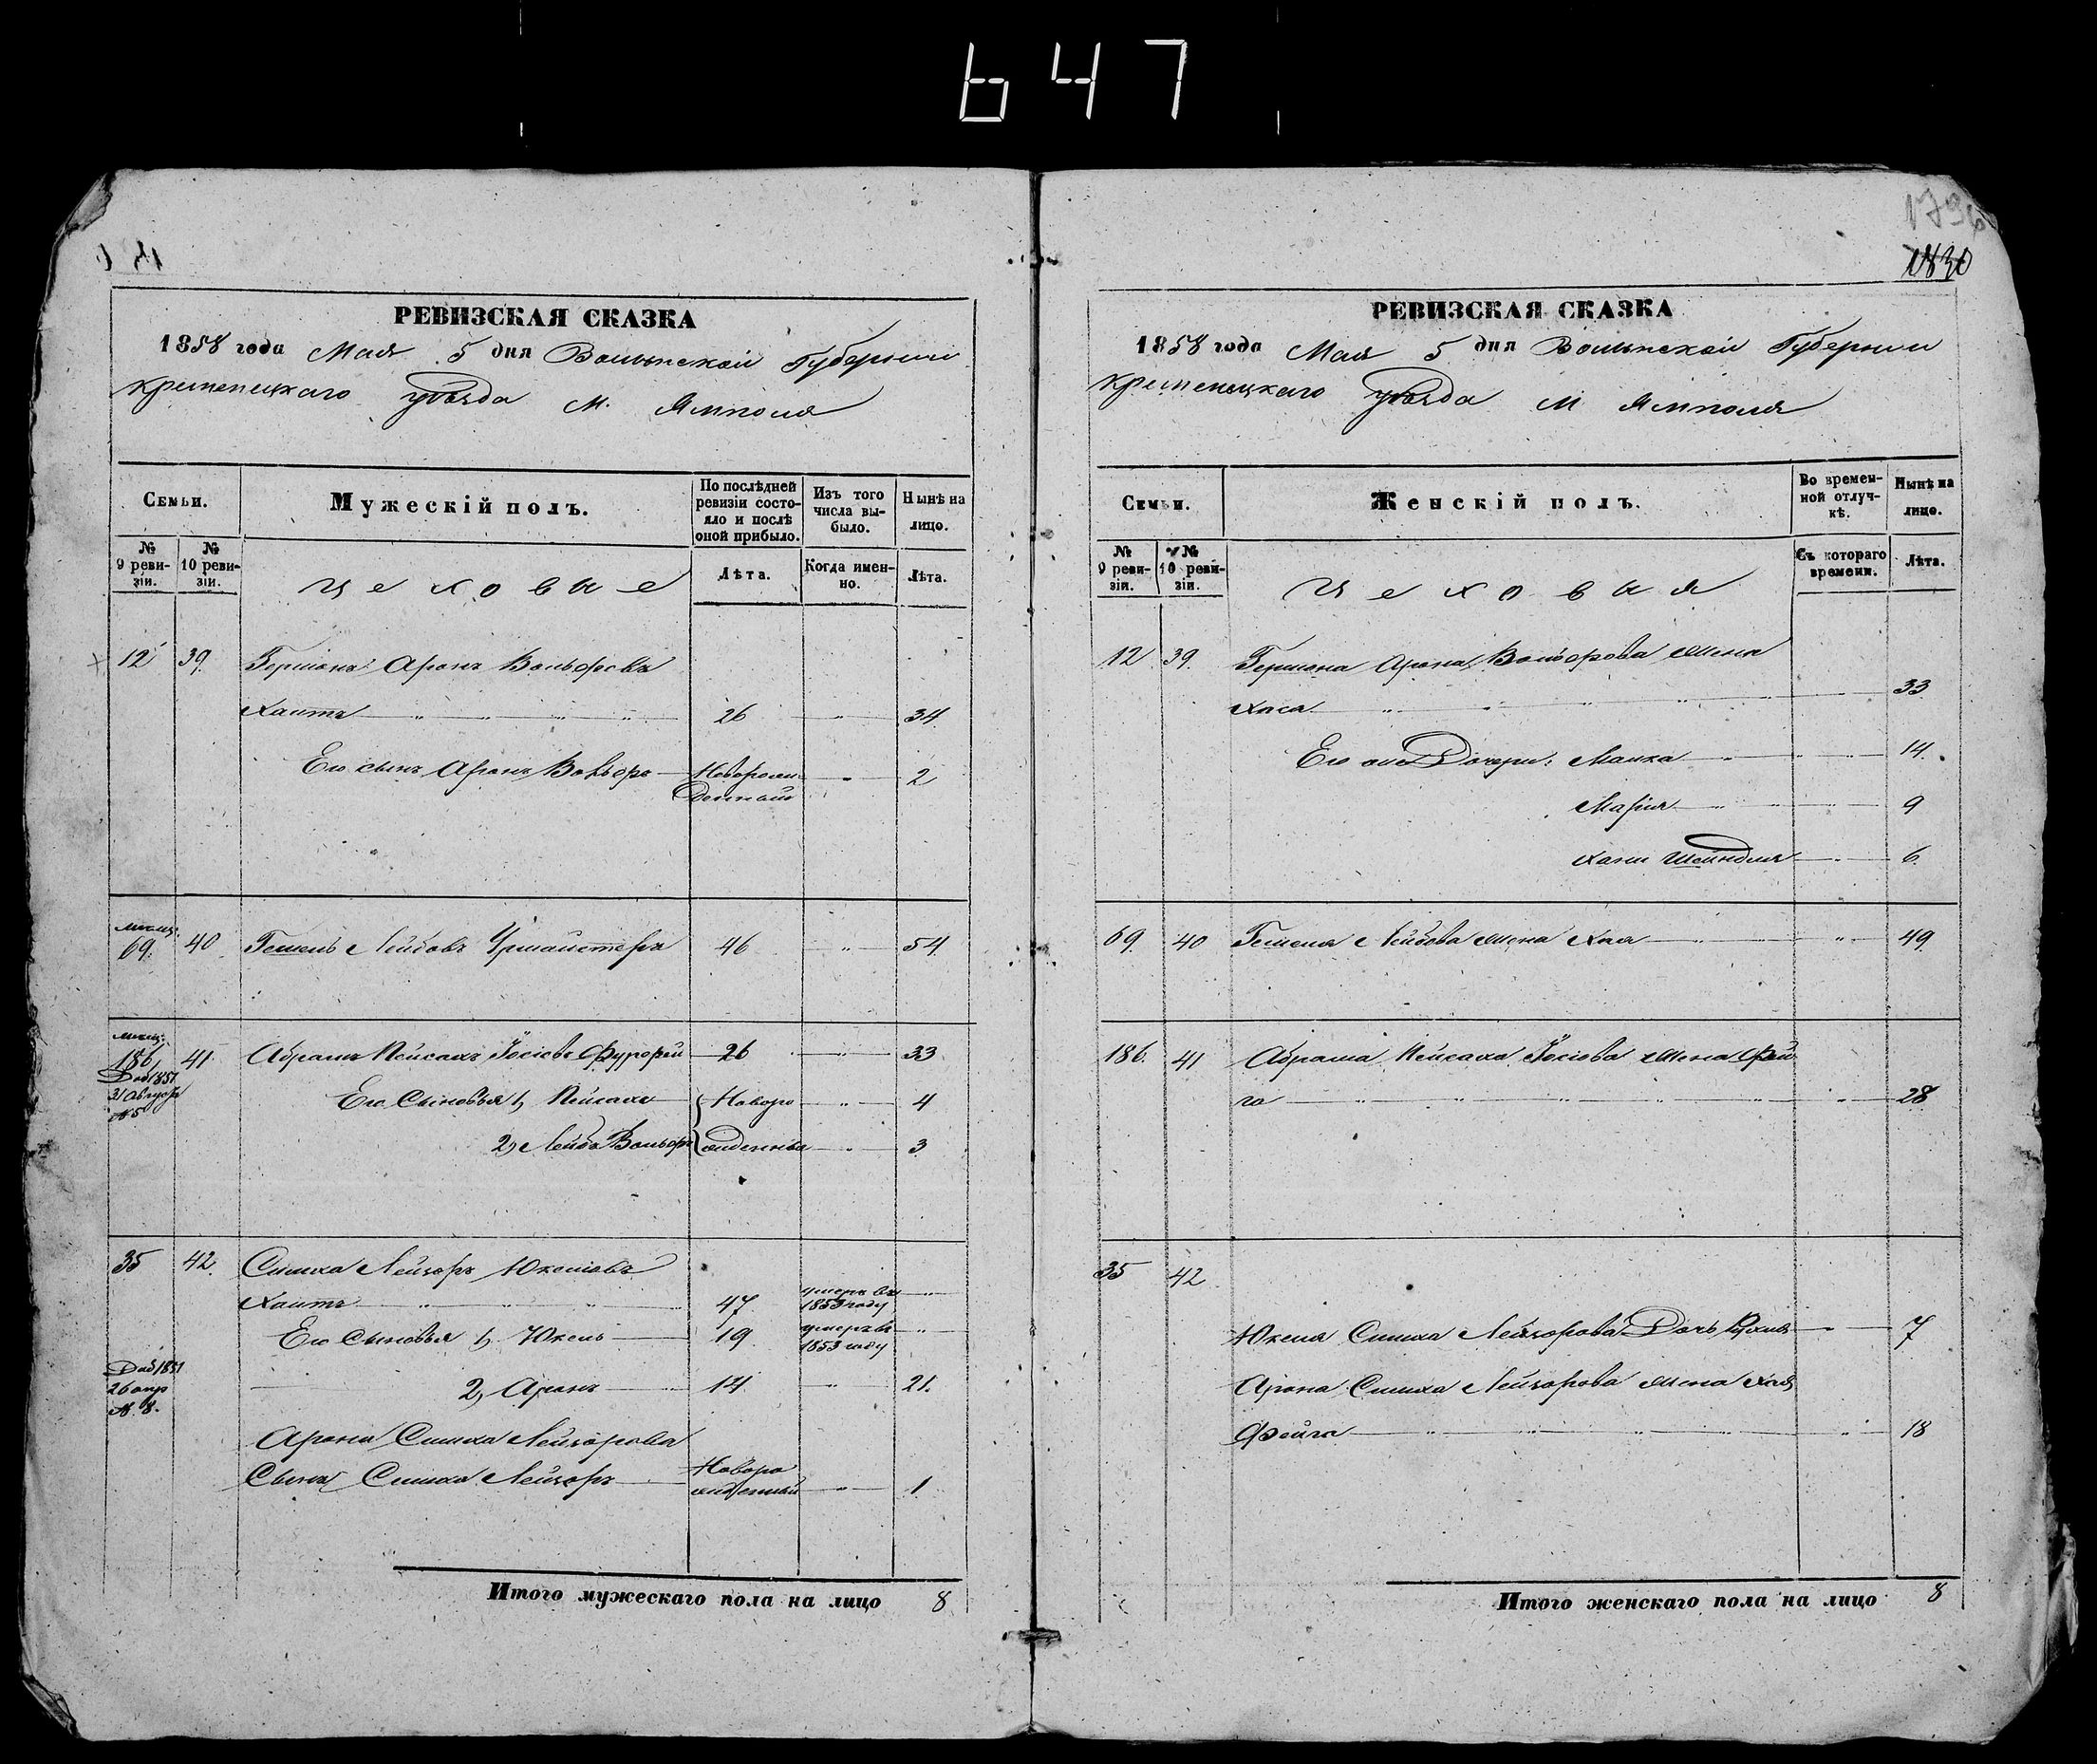 647
1796
1830
РЕВИЗСКАЯ СКАЗКА
1858 года Мая 5 дня Волынской Губернии
Кременецкаго уѣзда м. Ямполя
Семьи.
Мужескій полъ.
По послѣдней ревизіи состояло и послѣ оной прибыло.
Изъ того числа выбыло.
Нынѣ на лицо.
№ 9 ревизіи.
№ 10 ревизіи.
Цеховые
Лѣта.
Когда именно.
Лѣта.
12 39. Гершонъ Аронъ Вольфовъ
Хаитъ 26 34.
Его сынъ Аронъ Вольфъ Новорожденный 2
мѣщ. 69. 40 Гешель Лейбовъ 46 54.
мѣщ. 186, 41. Абрамъ Пейсахъ Іосіовъ 26 33
Доп 1851 31 № 5
Его Сыновья 1, Пейсахъ Новоро 4
2, Лейба Вольфъ жденные 3
35 42. Симха Лейзоръ Юкелевъ
Хаитъ 47. умеръ въ 1853 году
Его Сыновья 1, Юкель 19 умеръ въ 1853 году
Доп 1851 26 апр № 8.
2, Аронъ 14. 21.
Арона Симха Лейзорова
Сынъ Симха Лейзоръ Новорожденный 1
Итого мужескаго пола на лицо 8
РЕВИЗСКАЯ СКАЗКА
1858 года Мая 5 дня Волынской Губернии
Кременецкаго уѣзда м Ямполя
Семьи.
Женскій полъ.
Во временной отлучкѣ.
Нынѣ на лицо.
№ 9 ревизіи.
№ 10 ревизіи.
Цеховыя
Съ котораго времени.
Лѣта.
12 39. Гершона Арона Вольфова жена
Хася 33
Его же Дочери: Малка 14.
Марія 9
Хани Шейндля 6.
69. 40 Гешеля Лейбова жена Хая 49.
186. 41 Абрама Пейсаха Іосіова жена Фей
га 28
35 42
Юкеля Симха Лейзорова Дочь Рухля 7
Арона Симха Лейзорова жена Хая
Фейга 18
Итого женскаго пола на лицо 8